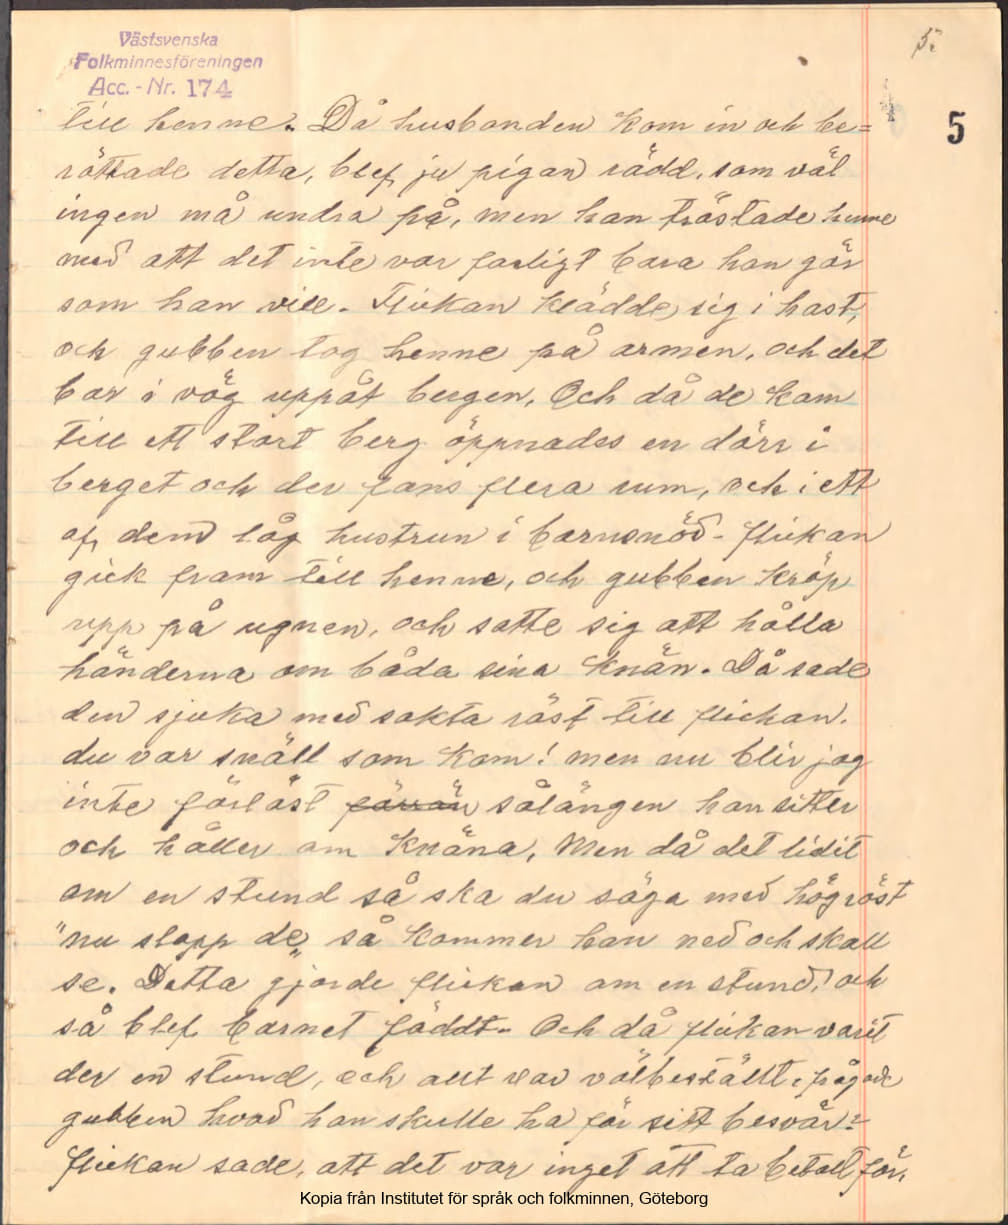 Västsvenska
Folkminnesföreningen
Acc. - Nr. 174
5.
5
till henne. Då husbonden kom in och be=
rättade detta, blef ju pigan rädd, som väl
ingen må undra på, men han tröstade henne
med att det inte var farligt bara hon gör
som han vill. Flickan klädde sig i hast,
och gubben tog henne på armen, och det
bar i väg uppåt bergen, Och då de kom
till ett stort berg öppnades en dörr i
berget och der fans flera rum, och i ett
af dem låg hustrun i barnsnöd - flickan
gick fram till henne, och gubben kröp
upp på ugnen, och satte sig att hålla
händerna om båda sina knän. Då sade
den sjuka med sakta röst till flickan.
du var snäll som kom! men nu blir jag
inte förlöst förrän sålängen han sitter
och håller om knäna, Men då det lidit
om en stund så ska du säga med hög röst
"nu slapp de" så kommer han ned och skall
se. Detta gjorde flickan om en stund, och
så blef barnet föddt - Och då flickan varit
der en stund, och allt var välbeställt, frågade
gubben hvad hon skulle ha för sitt besvär?
flickan sade, att det var inget att ta betalt för,
Kopia från Institutet för språk och folkminnen, Göteborg